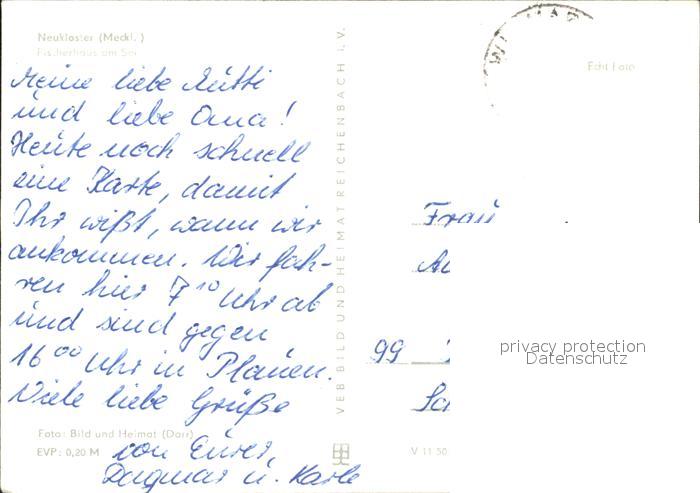 Neukloster (Meckl.)
Fischerhaus am See
Meine liebe Mutti
und liebe Oma!
Heute noch schnell
eine Karte, damit
Ihr wißt, wann wir
ankommen. Wir fah-
ren hier 7¹⁰ Uhr ab
und sind gegen
16⁰⁰ Uhr in Plauen.
Viele liebe Grüße
von Eurer,
Dagmar u. Karle
Foto: Bild und Heimat (Darr)
EVP: 0,20 M
VEB BILD UND HEIMAT REICHENBACH I. V.
V 11 50
WISMAR
Echt Foto
Frau
99
privacy protection
Datenschutz